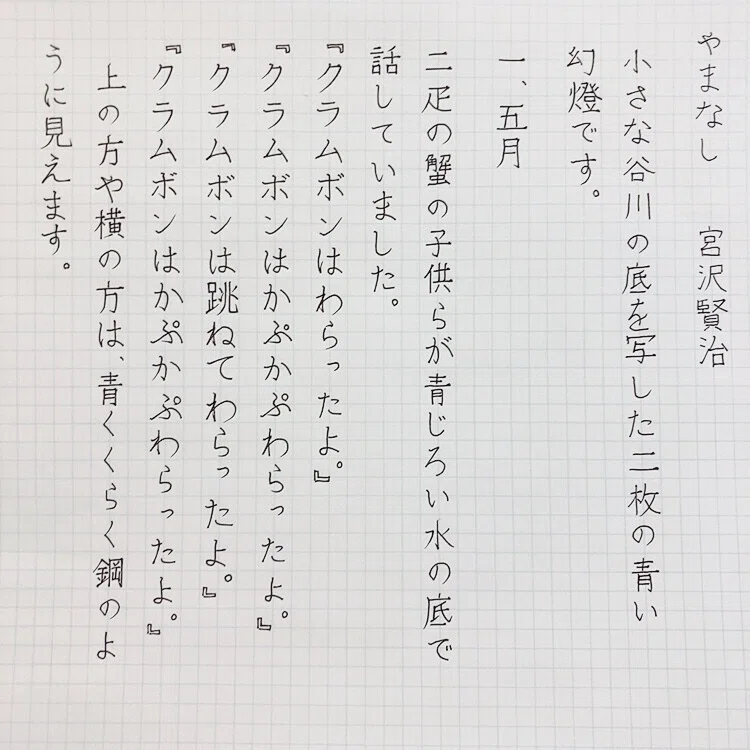 やまなし　宮沢賢治
小さな谷川の底を写した二枚の青い
幻燈です。
一、五月
二疋の蟹の子供らが青じろい水の底で
話していました。
『クラムボンはわらったよ。』
『クラムボンはかぷかぷわらったよ。』
『クラムボンは跳ねてわらったよ。』
『クラムボンはかぷかぷわらったよ。』
上の方や横の方は、青くくらく鋼のよ
うに見えます。